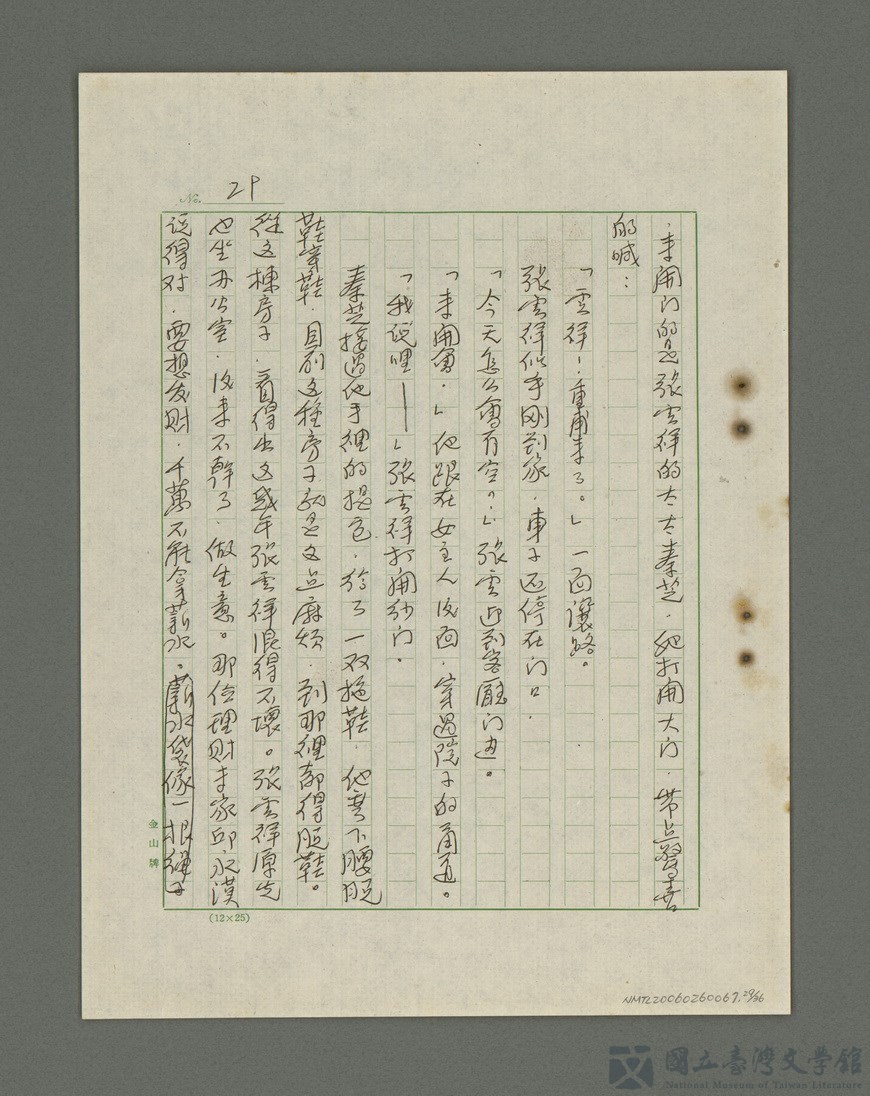 No. 29
來開门的是張雲祥的太太秦芝．她打開大门．帶点驚喜
的喊：
「雲祥！重甫來了。」一面讓路。
張雲祥似乎剛到家．車子还停在门口．
「今天怎么會有空？」張雲迎到客廳门边。
「來開會．」他跟在女主人后面．穿過院子的甬道。
「我说哩——」張雲祥打開纱门．
秦芝接過他手裡的提包．拎了一双拖鞋．他弯下腰脱
鞋穿鞋．目前这種房子就是这点麻烦．到那裡都得脱鞋。
從这棟房子．看得出这幾年張雲祥混得不壞。張雲祥原先
也坐办公室．后来不幹了．做生意。那位理財专家邱永漢
说得对．要想发財．千萬不能拿薪水．薪水袋像一根繩子
金山牌
(12×25)
NMTL20060260067.29/36
國立臺灣文學館
National Museum of Taiwan Literature